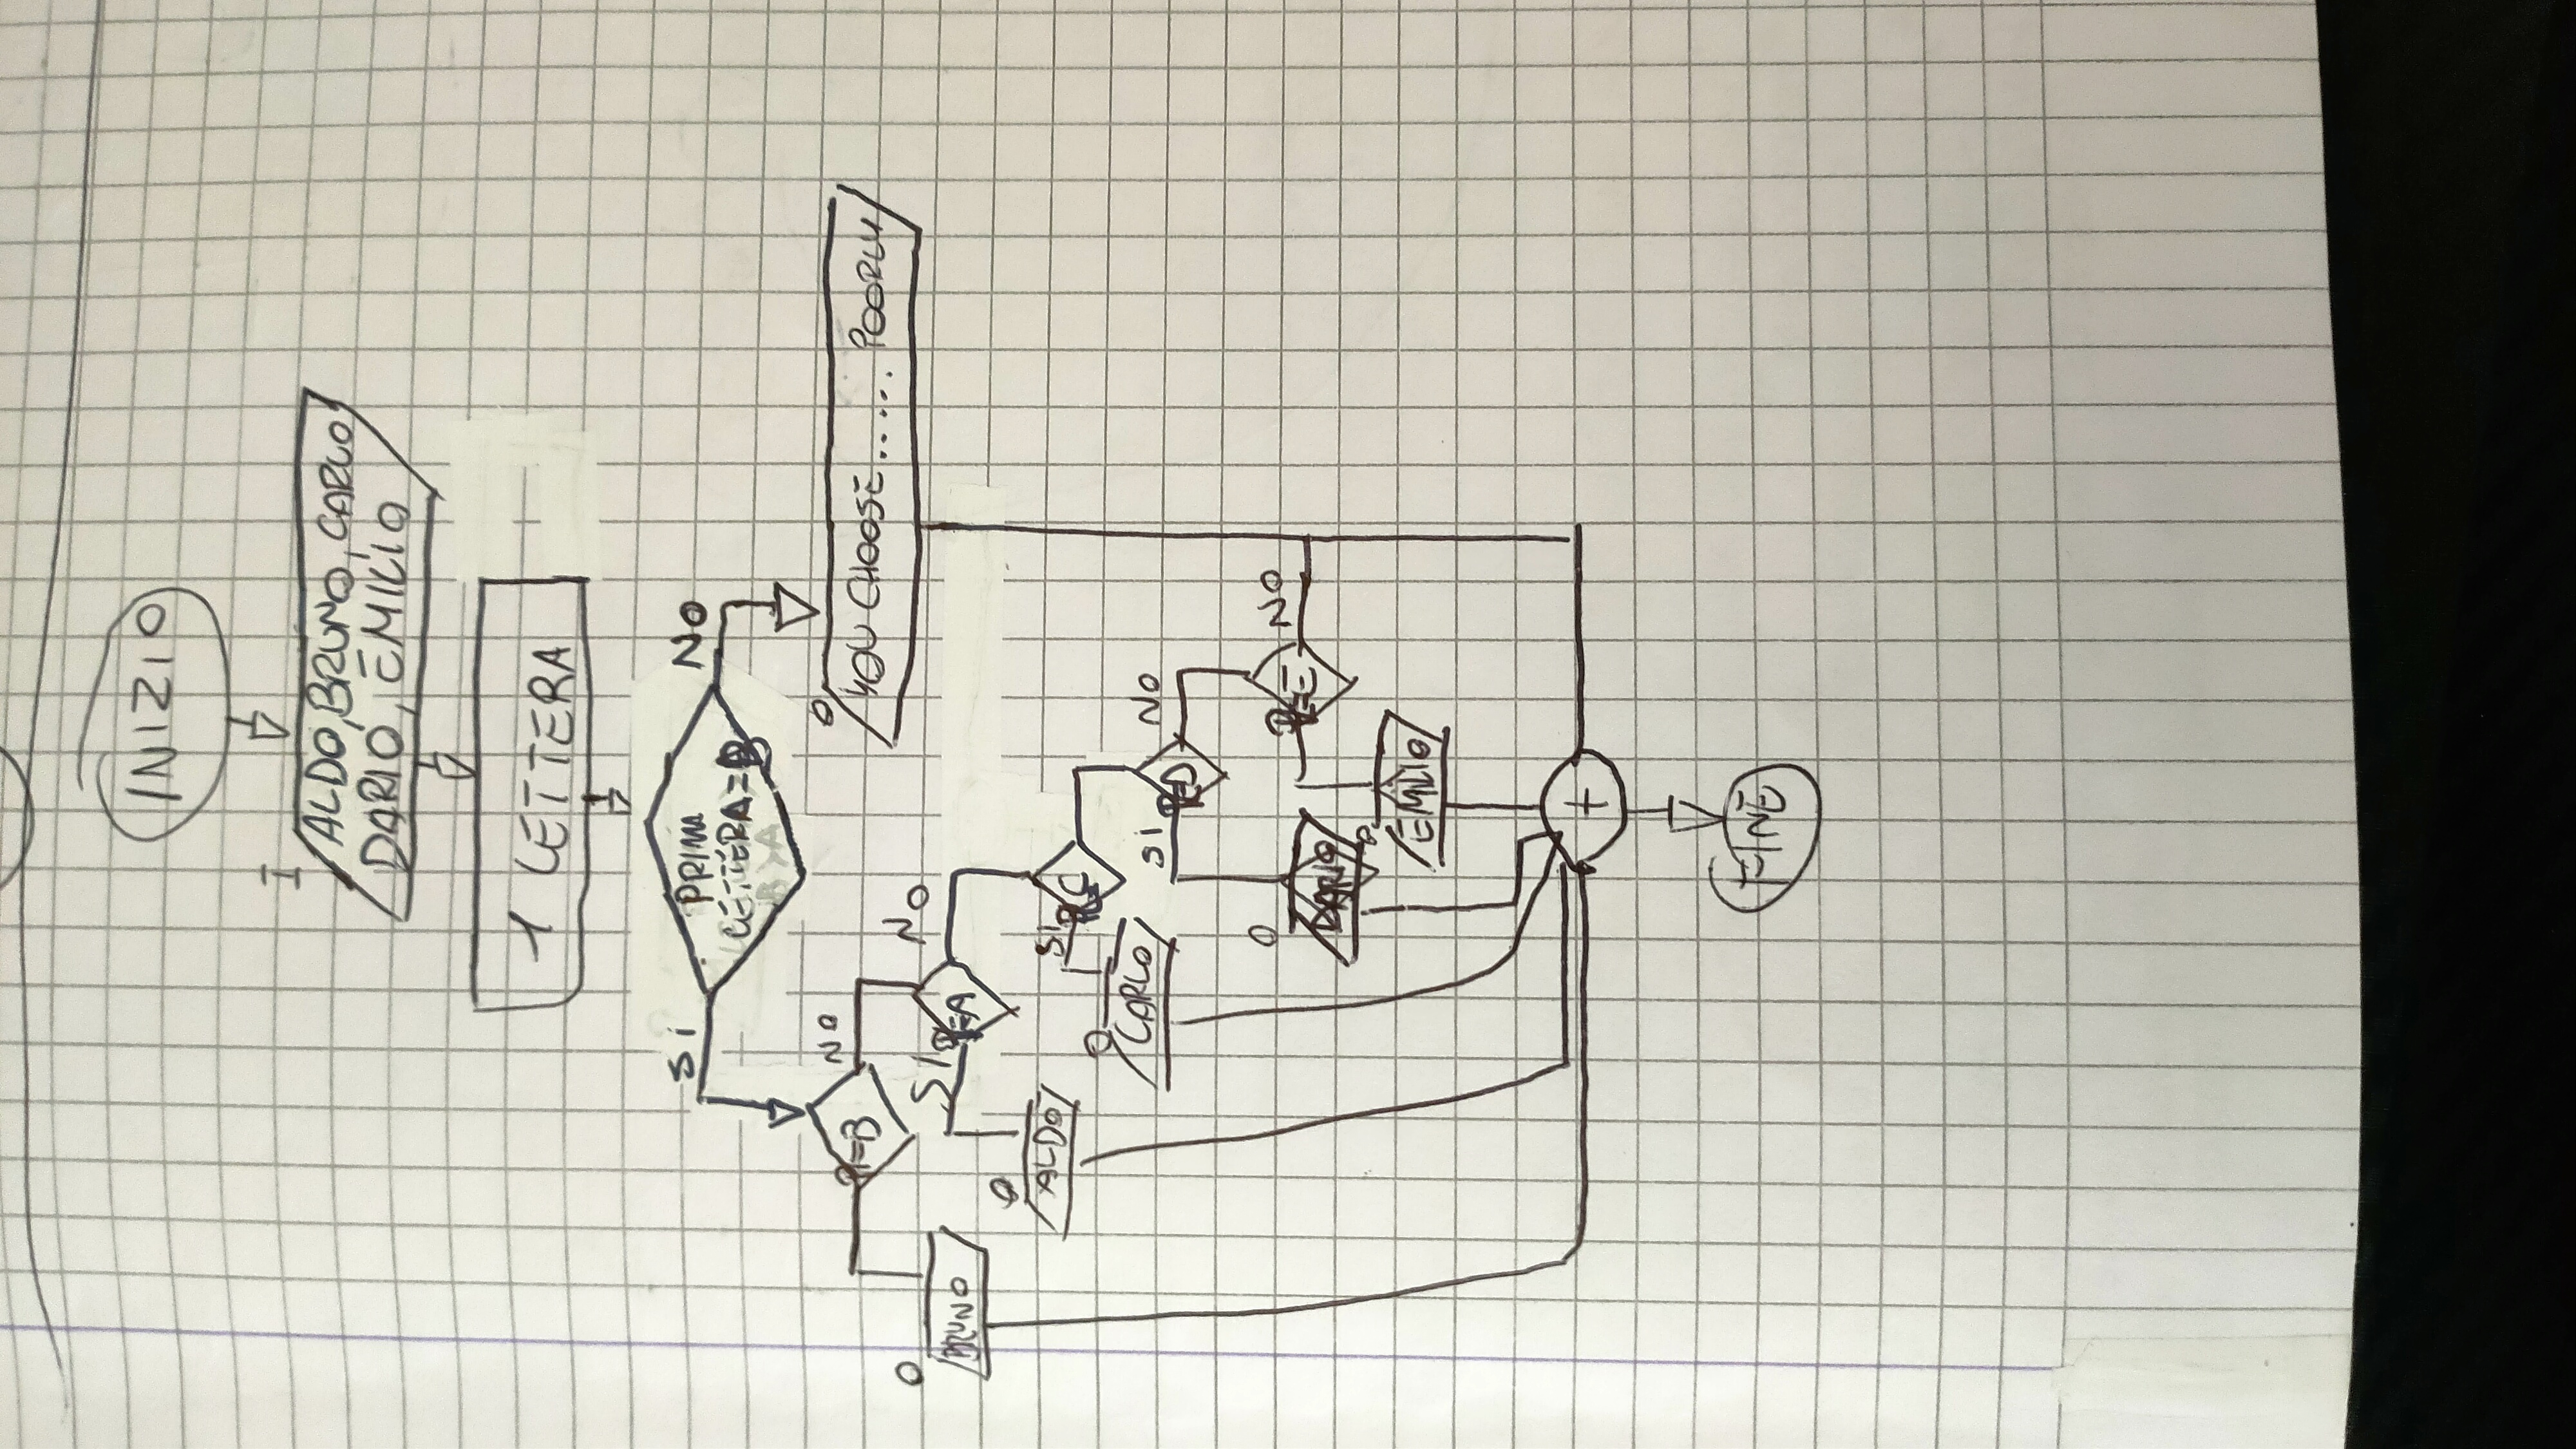 INIZIO
I
ALDO, BRUNO, CARLO,
DARIO, EMILIO
1 LETTERA
PRIMA
LETTERA=B
SI
NO
O
YOU CHOOSE...... POORLY
1=B
NO
O
BRUNO
SI
=A
NO
O
ALDO
SI
C
O
CARLO
SI
=D
NO
O
DARIO
=E
NO
O
EMILIO
+
FINE